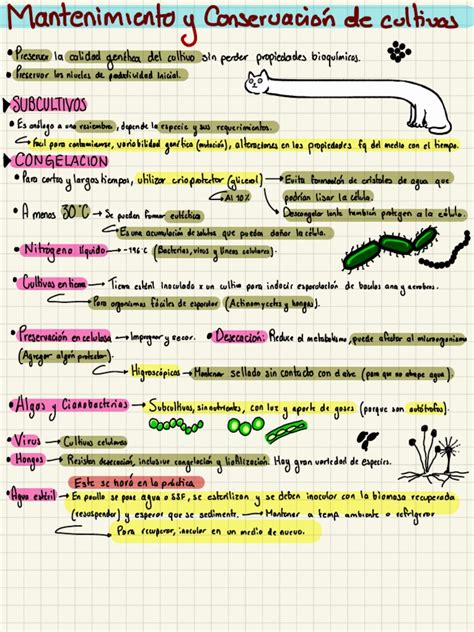 Mantenimiento y Conservación de cultivos
• Preservar la calidad genética del cultivo sin perder propiedades bioquímicas.
• Preservar los niveles de patogenicidad inicial.
SUBCULTIVOS
• Es análogo a una resiembra, depende la especie y sus requerimientos.
Fácil para contaminarse, variabilidad genética (mutación), alteraciones en las propiedades fq del medio con el tiempo.
CONGELACION
• Para cortos y largos tiempos, utilizar crioprotector (glicerol) → Evita formación de cristales de agua que
podrían lisar la célula.
Al 10%
Descongelar lento también protegen a la célula.
• A menos 30°C → Se pueden formar eutéctica
Es una acumulación de solutos que pueden dañar la célula.
• Nitrógeno líquido → -196°C (Bacterias, virus y líneas celulares).
• Cultivos en tierra → Tierra estéril inoculada x un cultivo para inducir esporulación de bacilos ana y aerobios.
Para organismos fáciles de esporular (Actinomycetes y hongos).
• Preservación en celulosa → Impregnar y secar.
• Desecación: Reduce el metabolismo, puede afectar al microorganismo
(Agregar algún protector).
Higroscópicos → Mantener sellado sin contacto con el aire (para que no atrape agua).
• Algas y Cianobacterias → Subcultivos, sin nutrientes, con luz y aporte de gases (porque son autótrofos).
• Virus → Cultivos celulares
• Hongos → Resisten desecación, inclusive congelación y liofilización. Hay gran variedad de especies.
Este se hará en la práctica
• Agua estéril → En pocillo se pone agua o SSF, se esterilizan y se deben inocular con la biomasa recuperada
(resuspender) y esperar que se sedimente. → Mantener a temp ambiente o refrigerar
Para recuperar, inocular en un medio de nuevo.